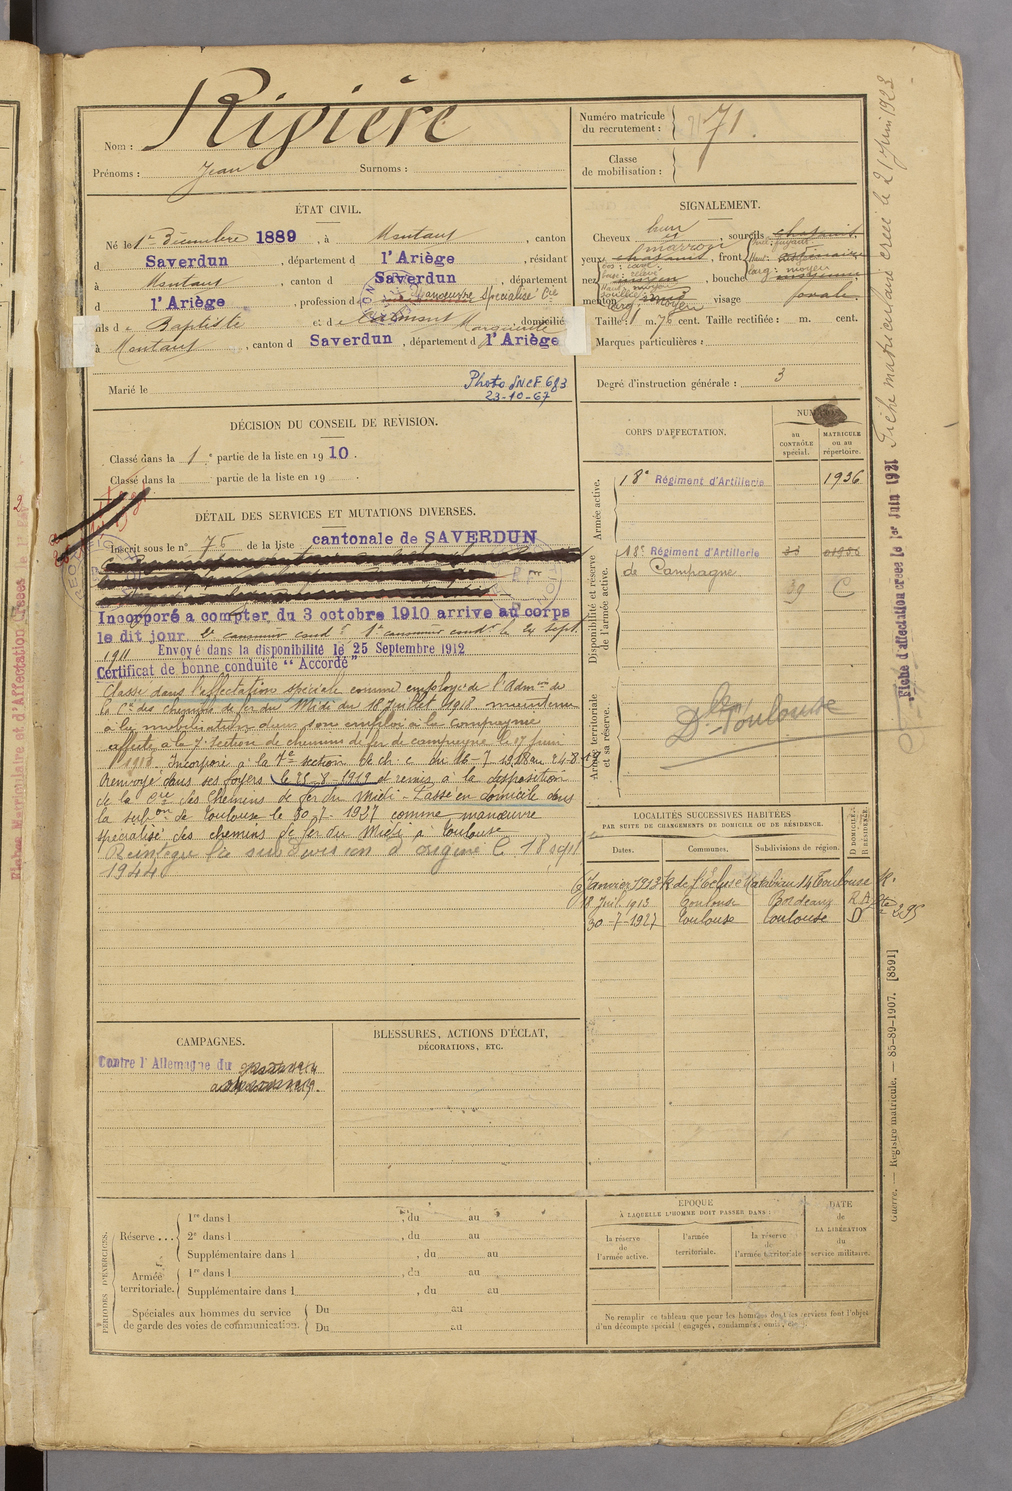 Nom : Rivière
Prénoms : Jean Surnoms :
Numéro matricule
du recrutement : 71.
Classe
de mobilisation :
ÉTAT CIVIL.
Né le 1er Décembre 1889, à Montaut, canton
d Saverdun, département d l'Ariège, résidant
à Montaut, canton d Saverdun, département
d l'Ariège, profession d manœuvre spécialisé Cie
fils de Baptiste et de Marguerite domicilié
à Montaut, canton d Saverdun, département d l'Ariège
Marié le
Photo SNCF 683
23-10-67
SIGNALEMENT.
Cheveux brun, sourcils
yeux marron, front
nez, bouche
menton visage
Taille : 1 m. 76 cent. Taille rectifiée : m. cent.
Marques particulières :
Degré d'instruction générale : 3
DÉCISION DU CONSEIL DE RÉVISION.
Classé dans la 1e partie de la liste en 1910.
Classé dans la partie de la liste en 19
DÉTAIL DES SERVICES ET MUTATIONS DIVERSES.
Inscrit sous le n° 76 de la liste cantonale de SAVERDUN
Incorporé à compter du 3 octobre 1910 arrive au corps
le dit jour 2e canonnier condr 1er canonnier condr le 24 sept.
1911 Envoyé dans la disponibilité le 25 Septembre 1912
Certificat de bonne conduite "Accordé"
Classé dans l'affectation spéciale comme employé de l'Admon de
la Cie des chemins de fer du Midi du 18 Juillet 1913 maintenu
à la mobilisation dans son emploi à la compagnie
affecté à la 7e Section de chemins de fer de campagne le 17 Juin
Incorporé à la 7e section de ch. c. du 16-7 1918 au 24-8-19
Renvoyé dans ses foyers le 25-8-1919 et remis à la disposition
de la Cie des Chemins de fer du Midi - Passé en domicile dans
la subon de Toulouse le 30-7-1927 comme manœuvre
spécialisé des chemins de fer du Midi à Toulouse
Réintègre la subdivision d'origine le 18 sept
1944
CORPS D'AFFECTATION.
NUMÉROS
au
CONTRÔLE
spécial.
MATRICULE
ou au
répertoire.
Armée active.
18e Régiment d'Artillerie 1936
Disponibilité et réserve
de l'armée active.
18e Régiment d'Artillerie
de Campagne
39 C
Armée territoriale
et sa réserve.
Dle Toulouse
LOCALITÉS SUCCESSIVES HABITÉES
PAR SUITE DE CHANGEMENTS DE DOMICILE OU DE RÉSIDENCE.
Dates. Communes. Subdivisions de région. D. DOMICILE. R. RÉSIDENCE.
6 Janvier 1913 R. de l'Ecluse Matabiau 14 Toulouse R.
18 Juil. 1913 Toulouse Bordeaux R A
30-7-1927 Toulouse Toulouse D
295
CAMPAGNES.
Contre l'Allemagne du
BLESSURES, ACTIONS D'ÉCLAT,
DÉCORATIONS, ETC.
PÉRIODES D'EXERCICES.
Réserve...
1re dans l , du au
2e dans l , du au
Supplémentaire dans l , du au
Armée
territoriale.
1re dans l , du au
Supplémentaire dans l , du au
Spéciales aux hommes du service
de garde des voies de communication.
Du au
Du au
ÉPOQUE
À LAQUELLE L'HOMME DOIT PASSER DANS :
la réserve
de
l'armée active.
l'armée
territoriale.
la réserve
de
l'armée territoriale
DATE
de
LA LIBÉRATION
du
service militaire.
Ne remplir ce tableau que pour les hommes dont les services font l'objet
d'un décompte spécial (engagés, condamnés, omis, etc.
Fiche matriculaire créée le 21 Juin 1923
Fiche d'affectation créée le 1er Juin 1921
Guerre. — Registre matricule. — 85-89-1907. [8591]
Fiches Matriculaire et d'Affectation Créées le 1er